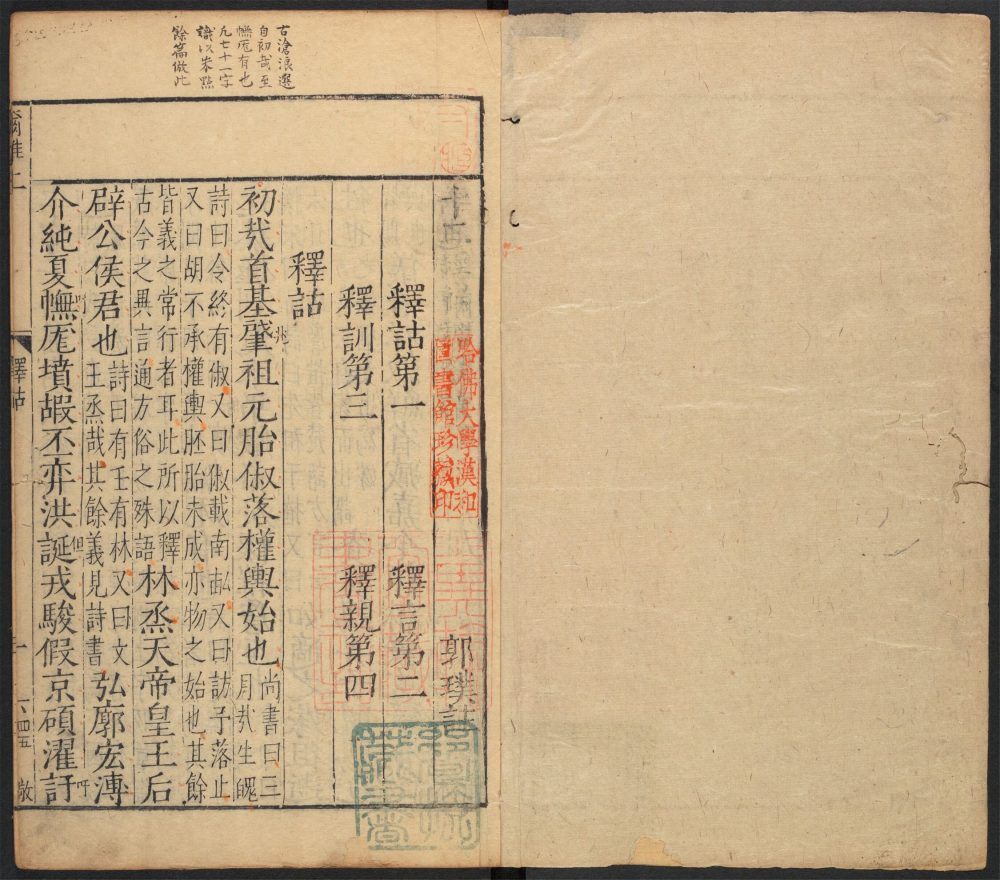 古滄浪選
自初哉至
幠厖有也
凡七十一字
識以朱點
餘篇倣此
郭璞註
哈佛大學漢和
圖書館珍藏印
釋詁第一　釋言第二
釋訓第三　釋親第四
釋詁
初哉首基肇祖元胎俶落權輿始也尚書曰三月哉生魄
詩曰令終有俶又曰俶載南畝又曰訪予落止
又曰胡不承權輿胚胎未成亦物之始也其餘
皆義之常行者耳此所以釋古今之異言通方俗之殊語林烝天帝皇王后
辟公侯君也詩曰有壬有林又曰文王烝哉其餘義見詩書弘廓宏溥
介純夏幠厖墳嘏丕弈洪誕戎駿假京碩濯訏
釋詁